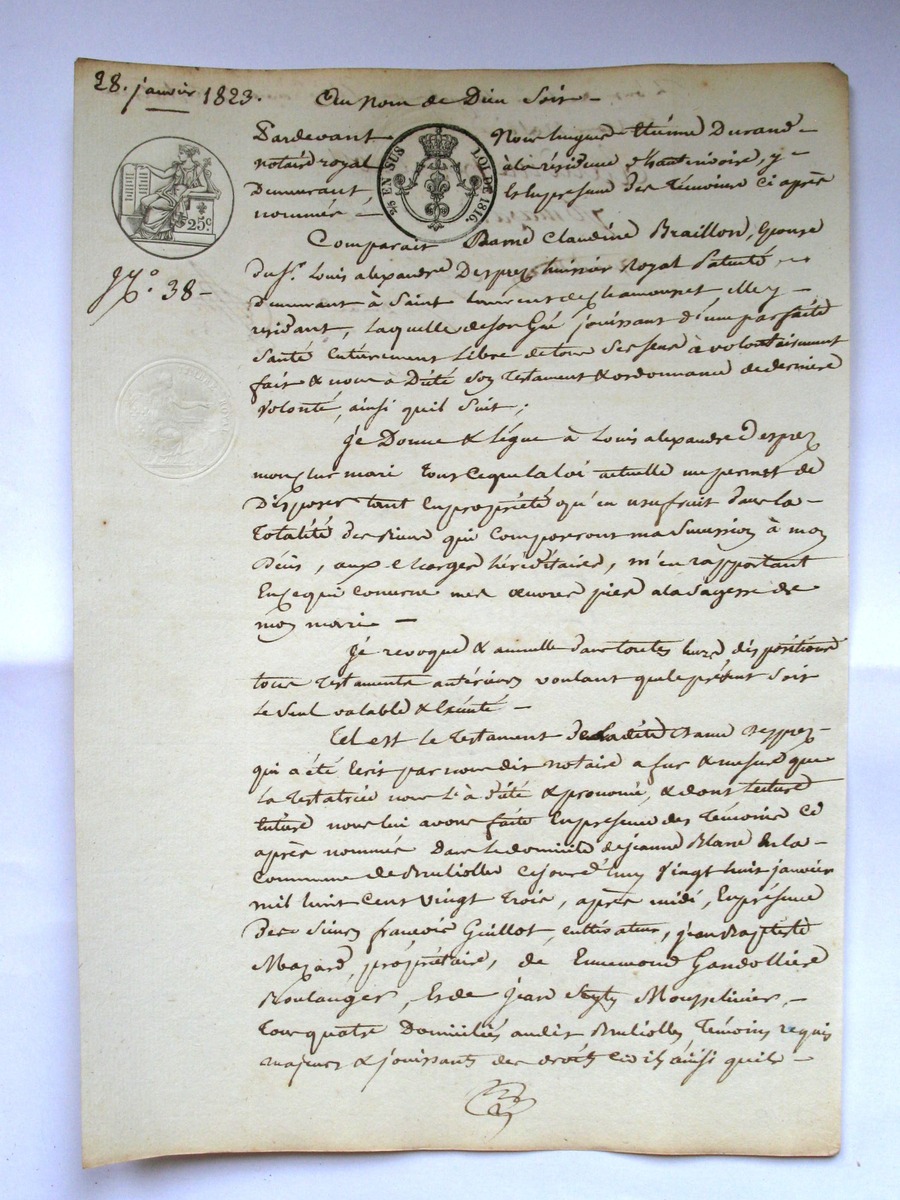 28. janvier 1823.
Au Nom de Dieu Soit —
Pardevant Nous hugues Etienne Durand —
notaire royal à la résidence d'hauterivoire, y —
Demeurant Et En presence des Témoins ci après
nommés —
EN SUS LOI DE 1816.
25c
N.° 38 —
Comparait Dame Claudine Braillon, Epouse
du Sr. Louis alexandre Desprez huissier royal Patenté,
demeurant à Saint Laurent de chamousset, elle y —
résidant, Laquelle de son Gré jouissant d'une parfaite
Santé Entièrement Libre de tous Ses Sens à volontairement
fait & nous à Dicté Son Testament & ordonnance de dernière
Volonté, ainsi quil Suit;
Je Donne & Lègue à Louis alexandre Desprez
mon cher mari Tous ce que la loi actuelle me permet de
Disposer Tant En propriété qu'en usufruit dans la —
Totalité des Biens qui Composeront ma Succession à mon
Décès, aux Charges héréditaires, m'en rapportant
En ce qui concerne mes œuvres pies a la Sagesse de
mon mari —
Je revoque & annulle dans toutes leurs dispositions
tous Testaments antérieurs voulant que le présent Soit
Le Seul valable & Exécuté —
Tel est Le Testament de Ladite Dame Desprez —
qui a été Ecrit par nous dit notaire a fur & mesure que
La Testatrice nous l'à dicté & prononcé, & dont lecture
lecture nous lui avons faite En présence des Témoins Ci
après nommés Dans le domicile de jeanne Blanc de la —
Commune de Brulliolles cejourd'huy Vingt huit janvier
mil huit Cent Vingt Trois, après midi, En présence
Des Sieurs françois Guillot, cultivateur, jean Baptiste
Mazard, propriétaire, de Ennemond Gandollière
Boulanger, Et de Jean Mousselinier, —
Tous quatre Domiciliés audit Brulliolles Témoins requis
majeurs & jouissants des droits Civils ainsi quils —